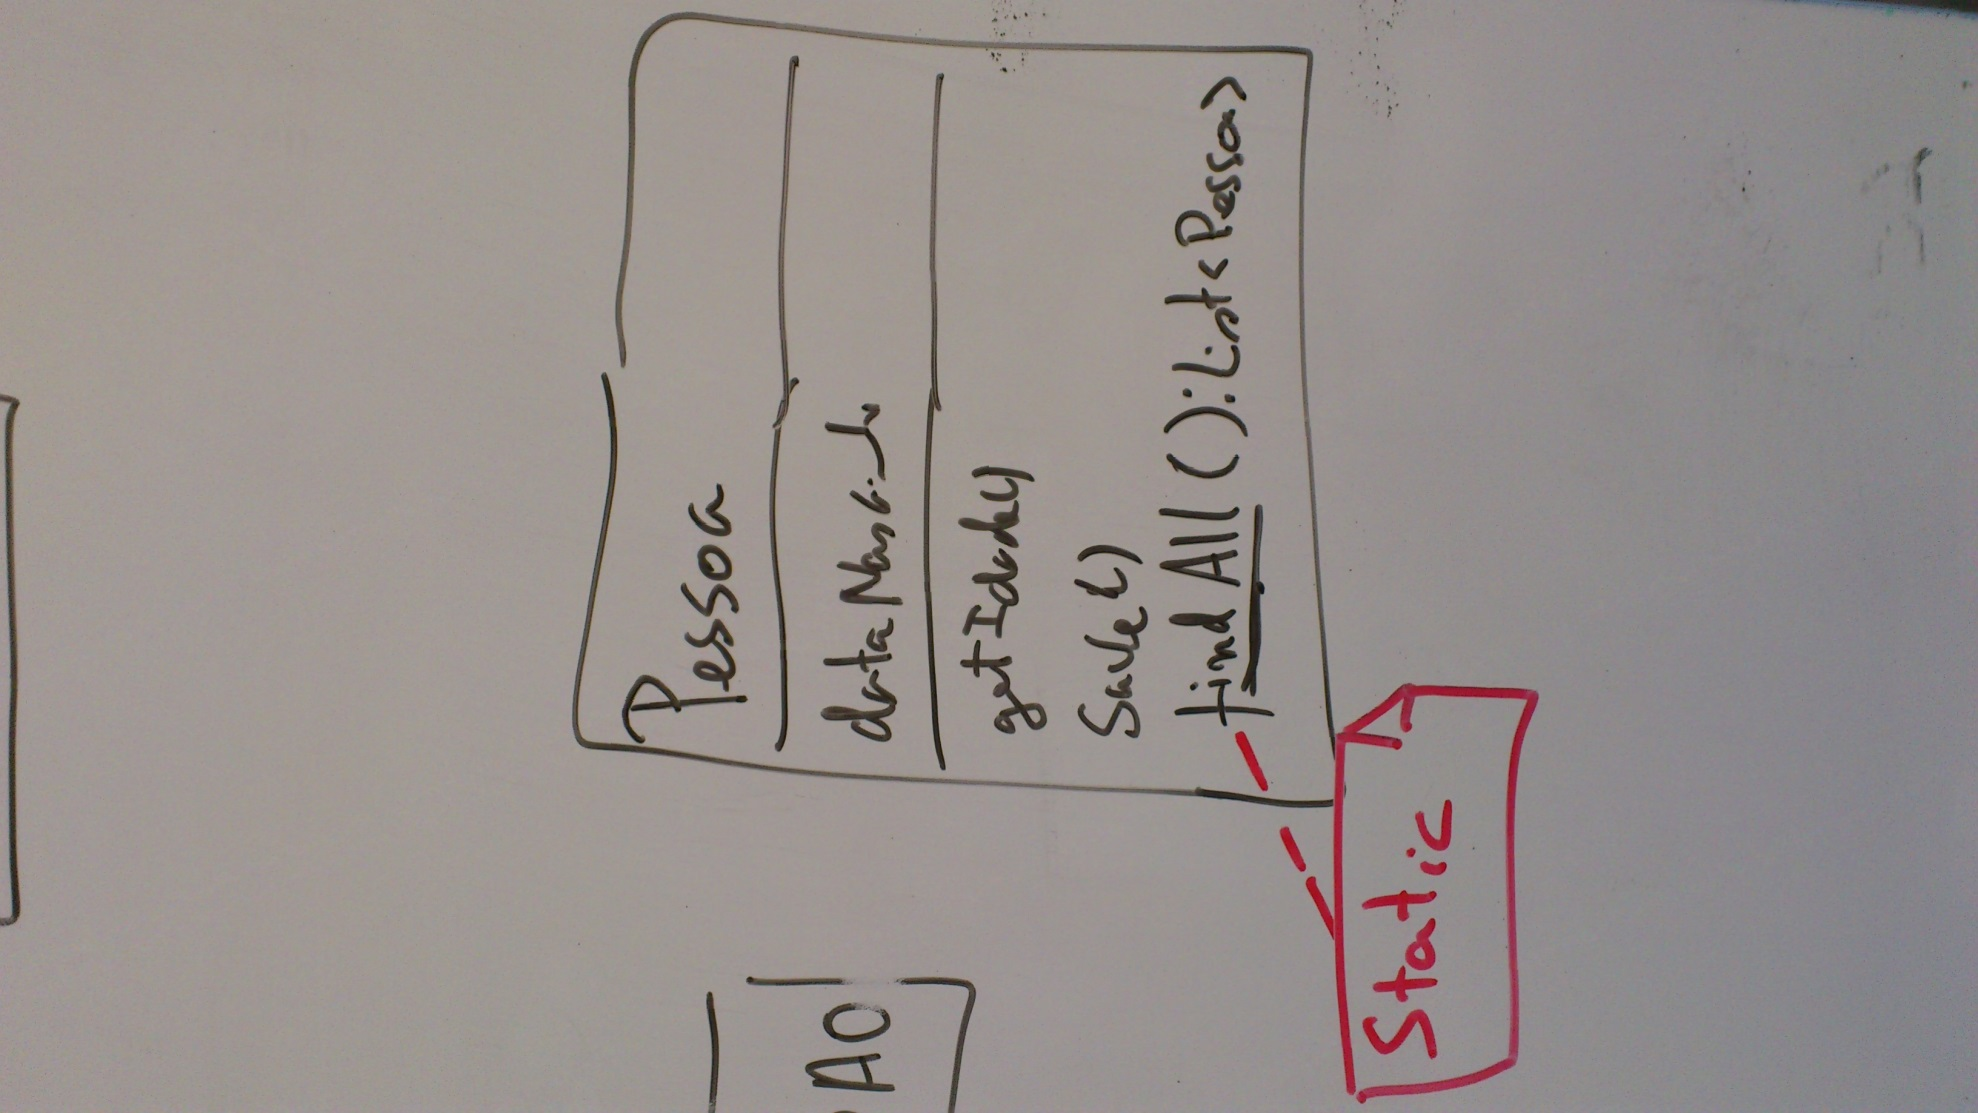 Pessoa
getIdade()
Save()
findAll():List<Pessoa>
Static
AO